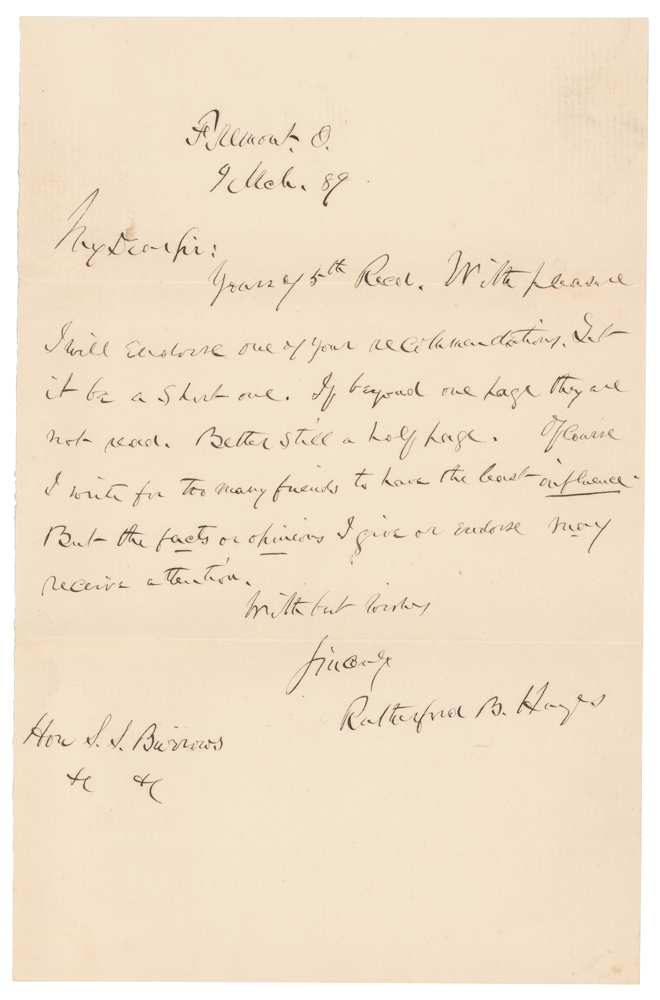 Fremont. O.
9 Mch. 89
My Dear Sir:
Yours of 5th Recd. With pleasure
I will endorse one of your recommendations. Let
it be a short one. If beyond one page they are
not read. Better still a half page. Of course
I write for too many friends to have the least influence.
But the facts or opinions I give or endorse may
receive attention.
With best wishes
Sincerely
Rutherford B. Hayes
Hon S. S. Burrows
&c &c